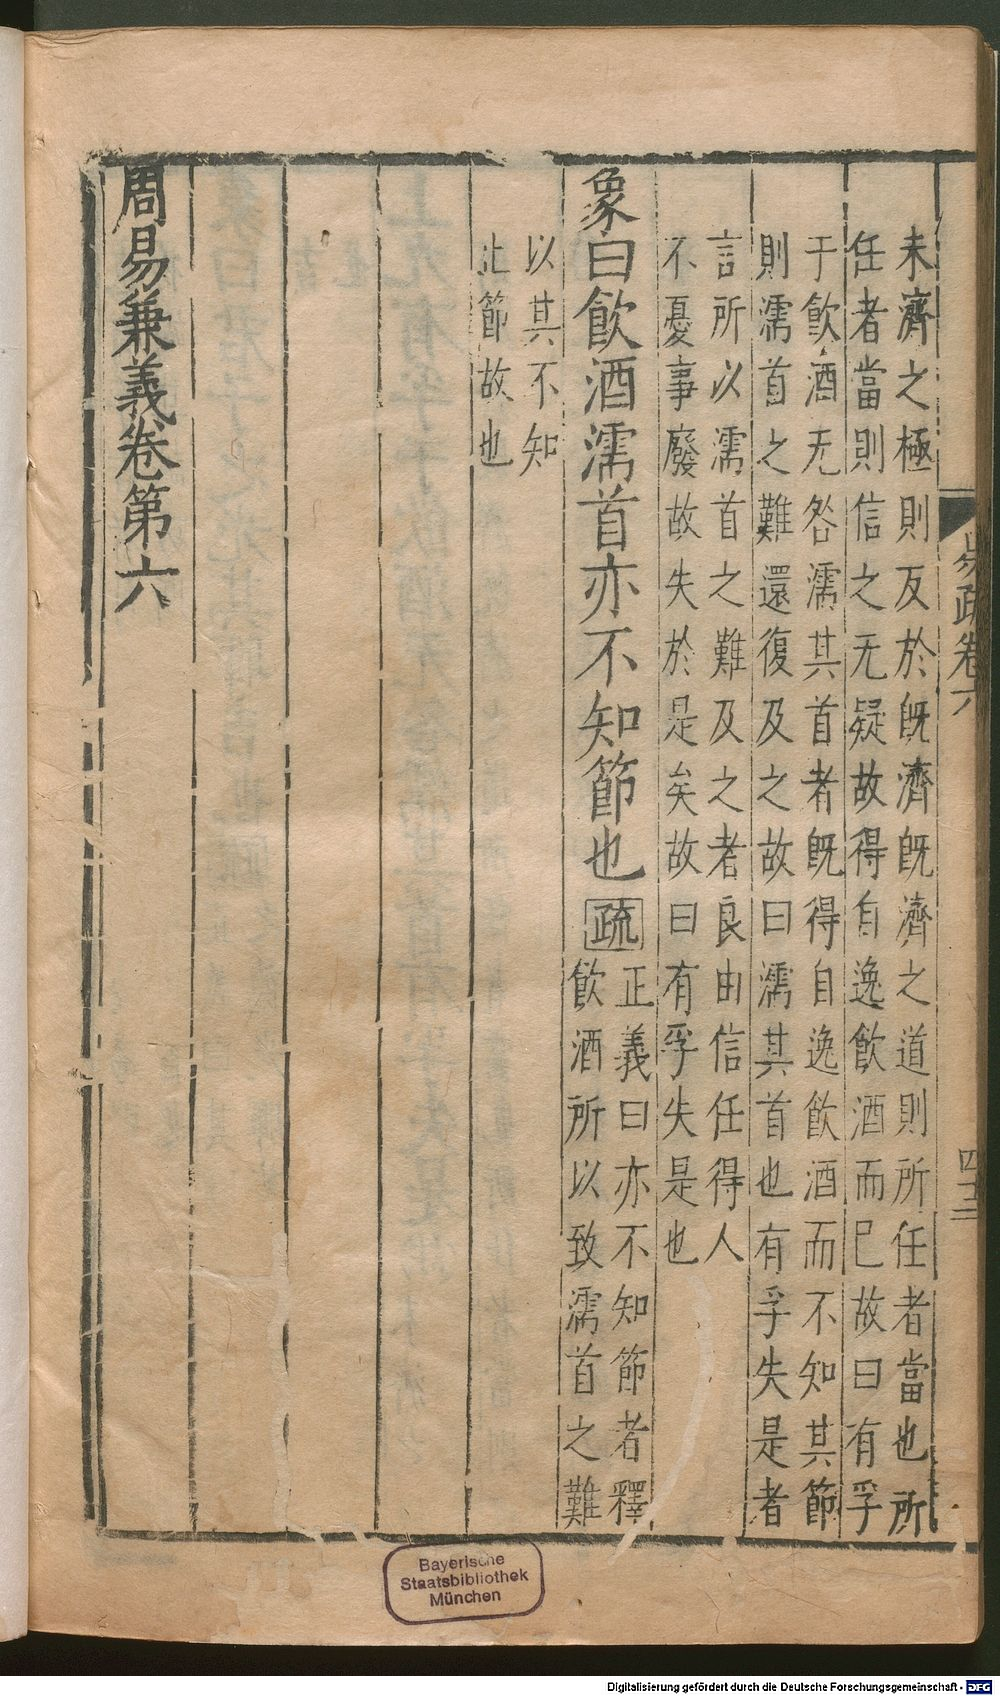 易疏卷六
四十三
未濟之極則反於旣濟旣濟之道則所任者當也所
任者當則信之无疑故得自逸飲酒而已故曰有孚
于飲酒无咎濡其首者旣得自逸飲酒而不知其節
則濡首之難還復及之故曰濡其首也有孚失是者
言所以濡首之難及之者良由信任得人
不憂事廢故失於是矣故曰有孚失是也
象曰飲酒濡首亦不知節也疏
正義曰亦不知節者釋
飲酒所以致濡首之難
以其不知
止節故也
周易兼義卷第六
Bayerische
Staatsbibliothek
München
Digitalisierung gefördert durch die Deutsche Forschungsgemeinschaft - DFG